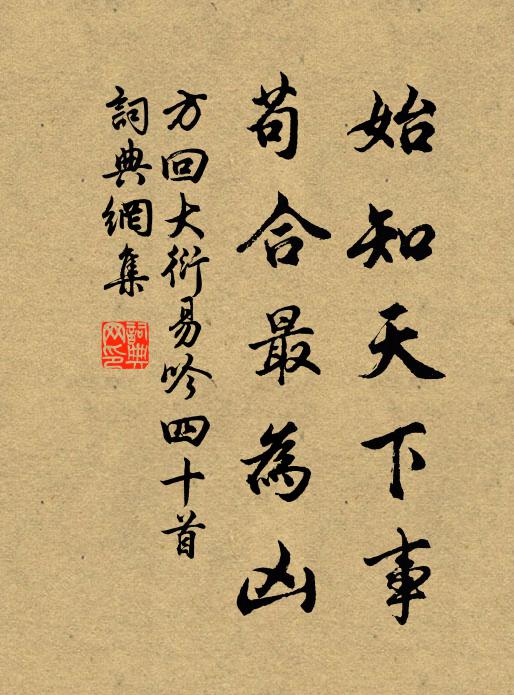 始知天下事
苟合最為凶
方回大衍易吟四十首
詞典網集
詞典
网印